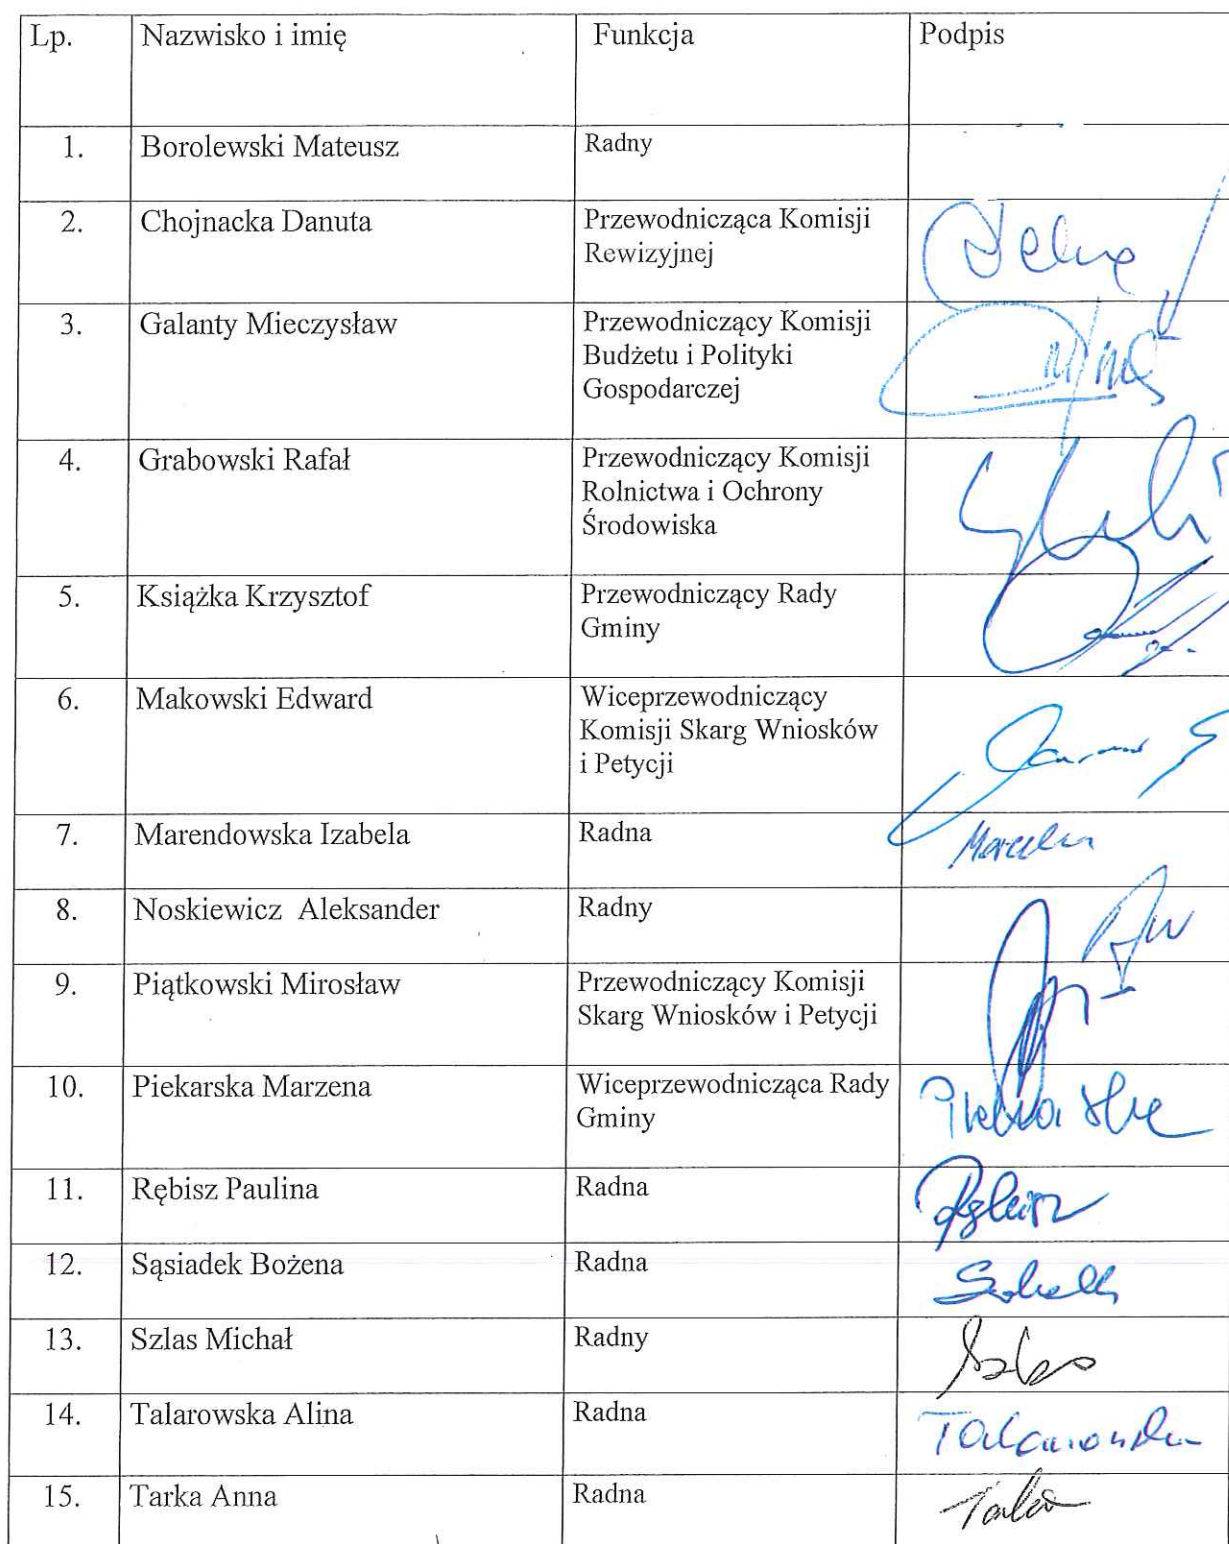 Lp. Nazwisko i imię Funkcja Podpis
1. Borolewski Mateusz Radny
2. Chojnacka Danuta Przewodnicząca Komisji
Rewizyjnej
3. Galanty Mieczysław Przewodniczący Komisji
Budżetu i Polityki
Gospodarczej
4. Grabowski Rafał Przewodniczący Komisji
Rolnictwa i Ochrony
Środowiska
5. Książka Krzysztof Przewodniczący Rady
Gminy
6. Makowski Edward Wiceprzewodniczący
Komisji Skarg Wniosków
i Petycji
7. Marendowska Izabela Radna
8. Noskiewicz Aleksander Radny
9. Piątkowski Mirosław Przewodniczący Komisji
Skarg Wniosków i Petycji
10. Piekarska Marzena Wiceprzewodnicząca Rady
Gminy
11. Rębisz Paulina Radna
12. Sąsiadek Bożena Radna
13. Szlas Michał Radny
14. Talarowska Alina Radna
15. Tarka Anna Radna